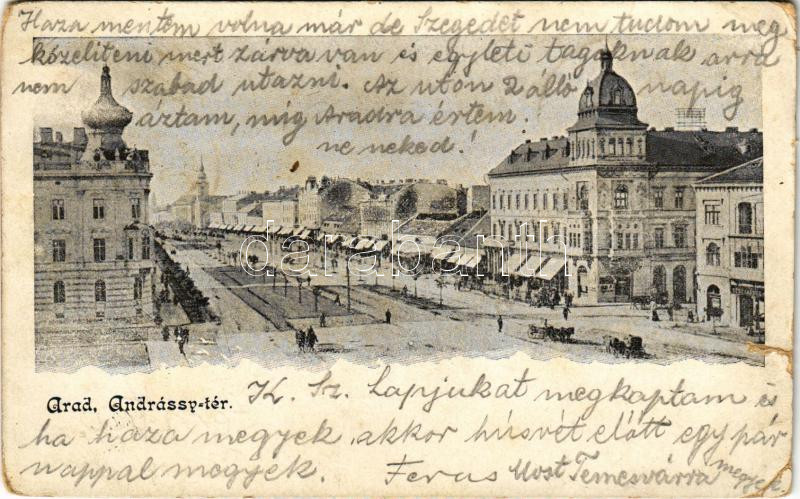 Haza mentem volna már de Szegedet nem tudom meg
közelíteni mert zárva van és egyleti tagoknak arra
nem szabad utazni. Az uton 2 álló napig
áztam, míg Aradra értem.
ne neked!
darabanth
Arad, Andrássy-tér.
K. Sz. Lapjukat megkaptam és
ha haza megyek, akkor húsvét előtt egy pár
nappal megyek. Ferus Most Temesvárra megyek.